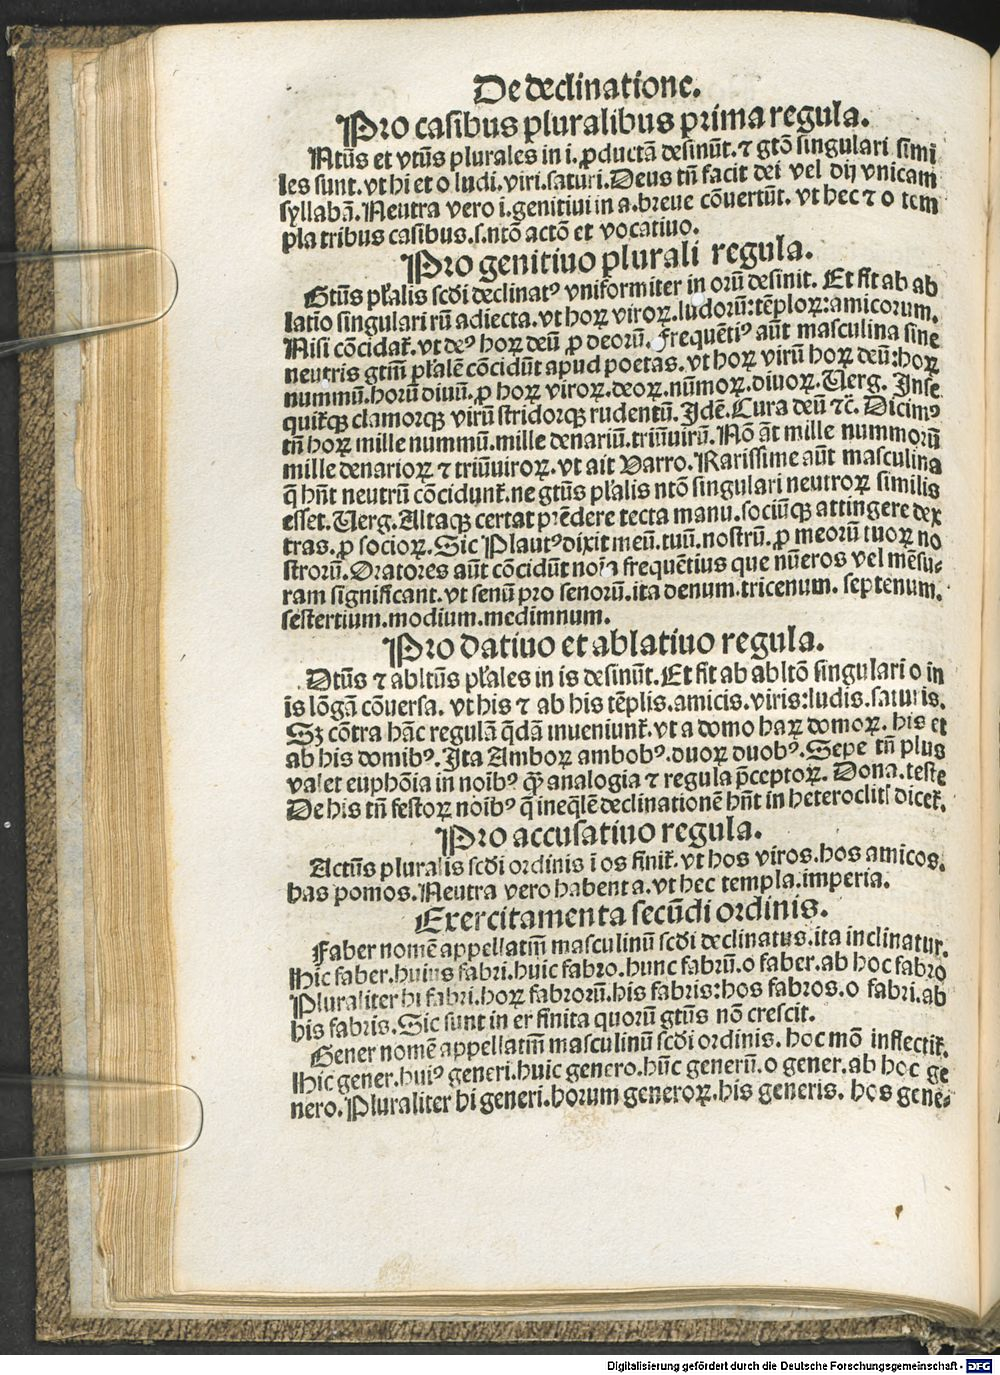 De declinatione.
Pro casibus pluralibus prima regula.
Ntūs et vtūs plurales in i. ꝓductā desinūt. ⁊ gtō singulari simi
les sunt. vt hi et o ludi. viri. saturi. Deus tñ facit dei vel dij vnicam
syllabā. Neutra vero i. genitiui in a. breue cōuertūt. vt hec ⁊ o tem
pla tribus casibus. s. ntō actō et vocatiuo.
Pro genitiuo plurali regula.
Gtūs pl̃alis scďi declinatꝰ vniformiter in orū desinit. Et fit ab ab
latio singulari rū adiecta. vt hoꝝ viroꝝ. ludorū: tēploꝝ: amicorum.
Nisi cōcidat̃. vt deꝰ hoꝝ deū ꝓ deorū. Frequētiꝰ aūt masculina sine
neutris gtīm pl̃alē cōcidūt apud poetas. vt hoꝝ virū hoꝝ deū: hoꝝ
nummū. horū diuū. ꝓ hoꝝ viroꝝ. deoꝝ. nūmoꝝ. diuoꝝ. Uerg. Inse
quit̃qꝫ clamorqꝫ virū stridorqꝫ rudentū. Idē. Cura deū ⁊c̃. Dicimꝰ
tñ hoꝝ mille nummū. mille denariū. triūuirū. Nō āt mille nummorū
mille denarioꝝ ⁊ triūuiroꝝ. vt ait Varro. Rarissime aūt masculina
q̄ hñt neutrū cōcidunt̃. ne gtūs pl̃alis ntō singulari neutroꝝ similis
esset. Uerg. Altaqꝫ certat prēdere tecta manu. sociūqꝫ attingere dex
tras. ꝓ socioꝝ. Sic Plautꝰ dixit meū. tuū. nostrū. ꝓ meorū tuoꝝ no
strorū. Oratores aūt cōcidūt noīa frequētius que nūeros vel mēsu-
ram significant. vt senū pro senorū. ita denum. tricenum. septenum.
sestertium. modium. medimnum.
Pro datiuo et ablatiuo regula.
Dtūs ⁊ abltūs pl̃ales in is desinūt. Et fit ab abltō singulari o in
is lōgā cōuersa. vt his ⁊ ab his tēplis. amicis. viris: ludis. saturis.
Sꝫ cōtra hāc regulā q̄dā inueniunt̃. vt a domo haꝝ domoꝝ. his et
ab his domibꝰ. Ita Amboꝝ ambobꝰ. duoꝝ duobꝰ. Sepe tñ plus
valet euphōia in noībꝰ q̄ꝫ analogia ⁊ regula p̄ceptoꝝ. Dona. teste
De his tñ festoꝝ noībꝰ q̄ ineq̄lē declinationē hñt in heteroclitꝭ dicet̃.
Pro accusatiuo regula.
Actūs pluralis scďi ordinis ī os finit̃. vt hos viros. hos amicos.
has pomos. Neutra vero habent a. vt hec templa. imperia.
Exercitamenta secūdi ordinis.
Faber nomē appellatīm masculinū scďi declinatus. ita inclinatur.
Hic faber. huius fabri. huic fabro. hunc fabrū. o faber. ab hoc fabro
Pluraliter hi fabri. hoꝝ fabrorū. his fabris: hos fabros. o fabri. ab
his fabris. Sic sunt in er finita quorū gtūs nō crescit.
Gener nomē appellatīm masculinū scďi ordinis. hoc mō inflectit̃.
Hic gener. huiꝰ generi. huic genero. hūc generū. o gener. ab hoc ge
nero. Pluraliter hi generi. horum generoꝝ. his generis. hos gene-
Digitalisierung gefördert durch die Deutsche Forschungsgemeinschaft - DFG